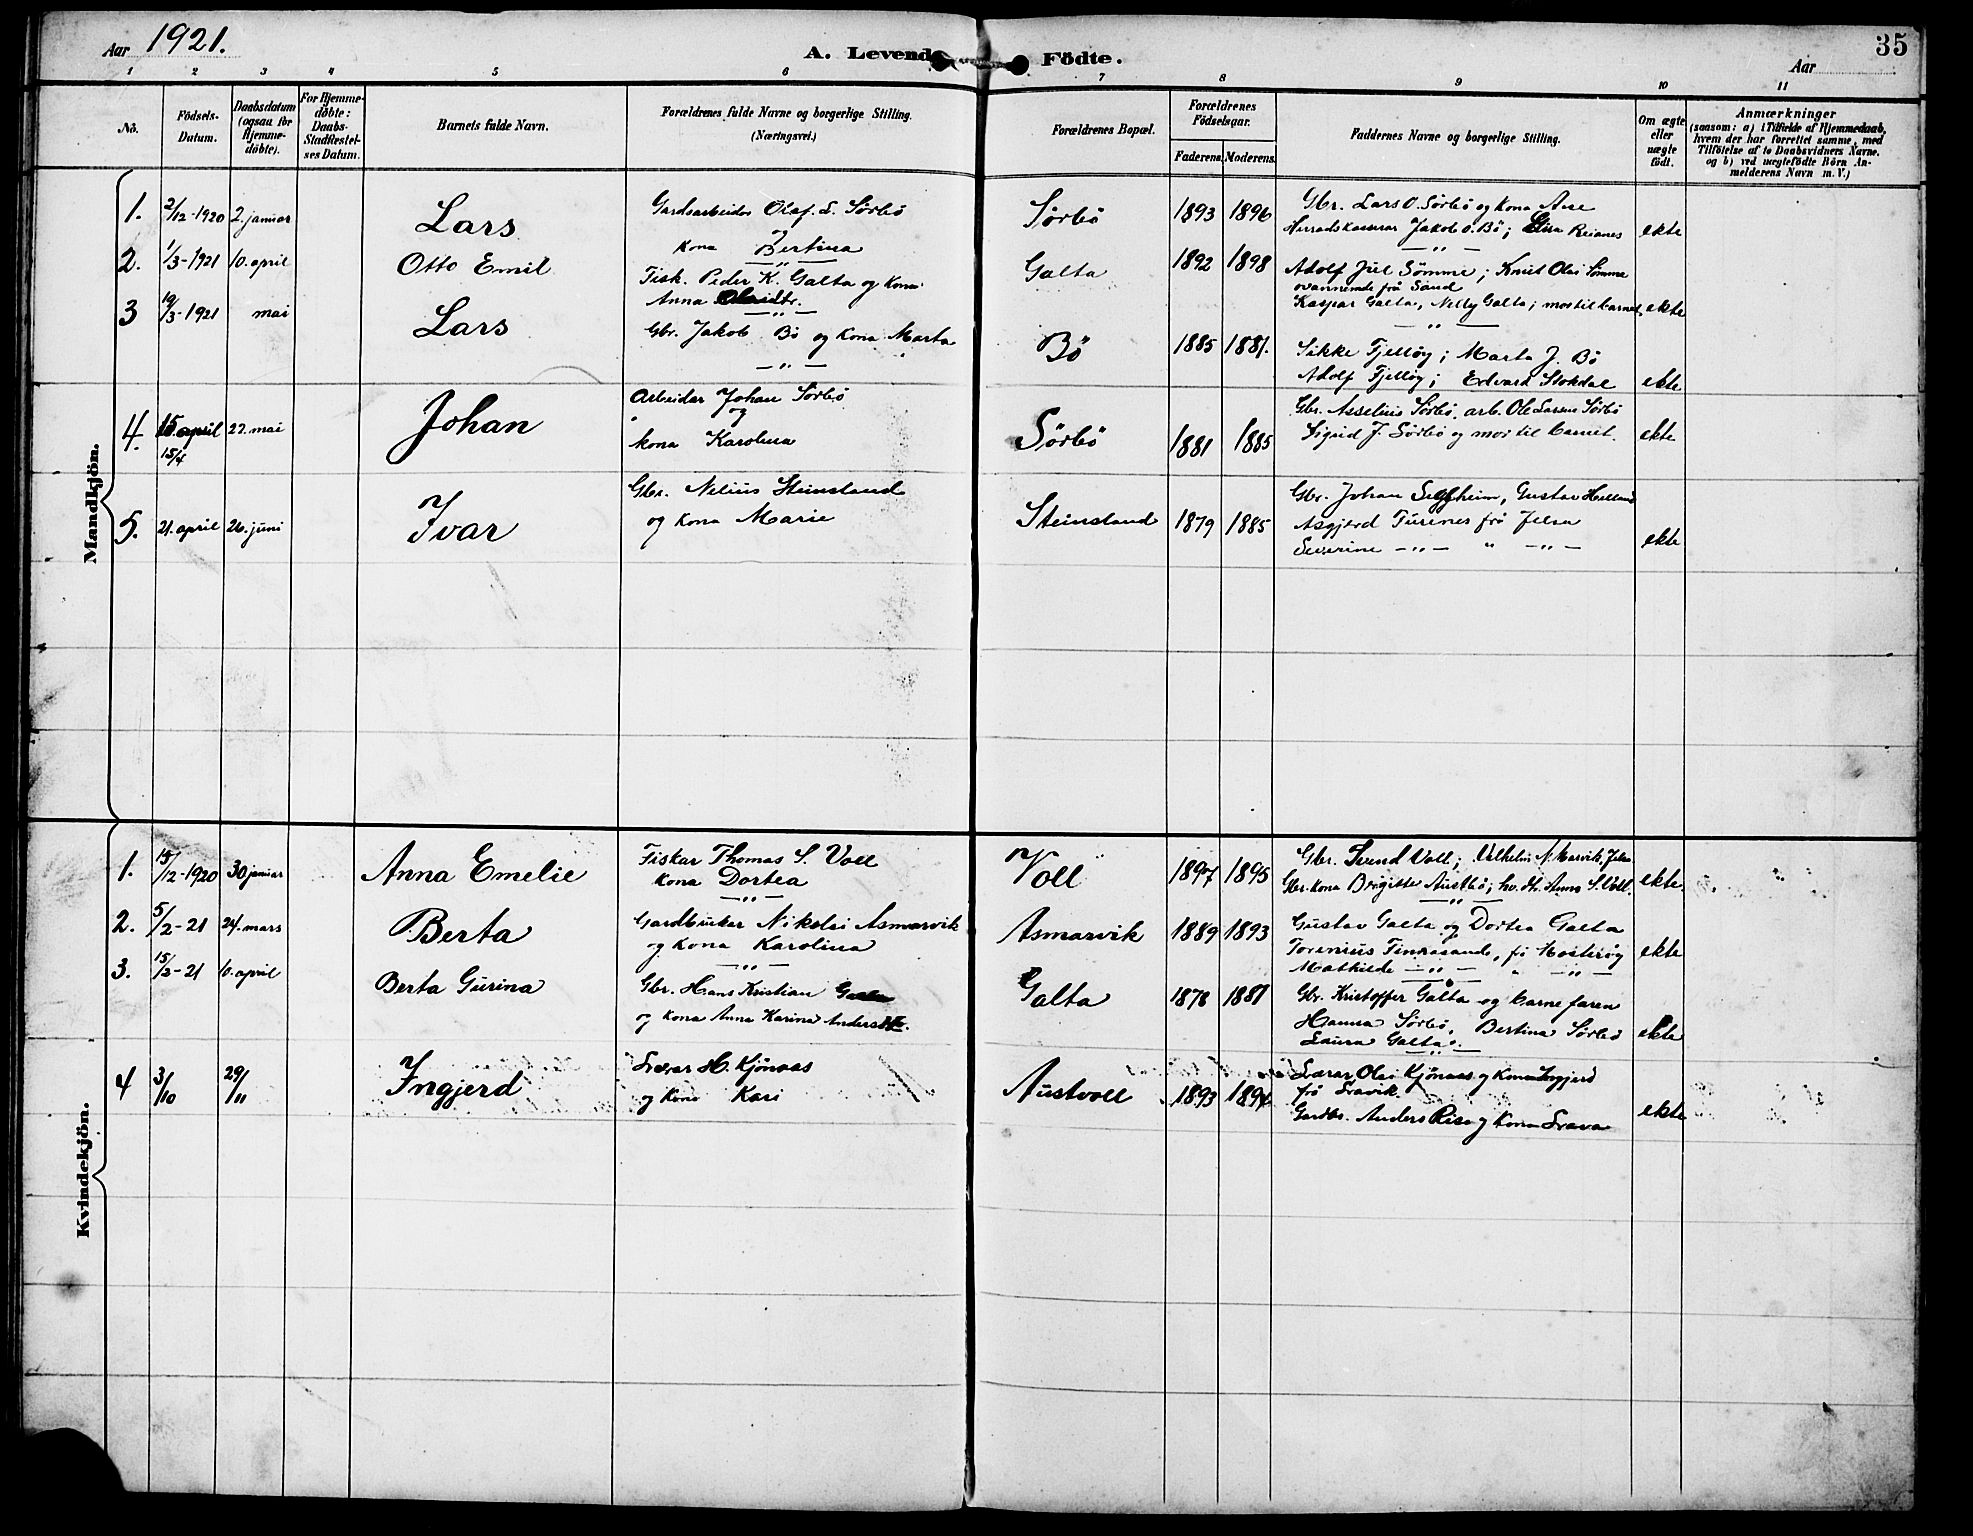 Aar 1921.
A. Levende Födte.
35
Aar
1 2 3 4 5 6 7 8 9 10 11
No.
Födsels-
Datum.
Daabsdatum
(ogsaa for
Hjemme-
döbte).
For Hjemme-
döbte:
Daabs-
Stadfæstel-
ses Datum.
Barnets fulde Navn.
Forældrenes fulde Navne og borgerlige Stilling.
(Næringsvei.)
Forældrenes Bopæl.
Forældrenes
Födselsaar.
Faderens. Moderens.
Faddernes Navne og borgerlige Stilling.
Om ægte
eller
uægte
födt.
Anmærkninger
(saasom: a) i Tilfælde af Hjemmedaab,
hvem der har forrettet samme, med
Tilföielse af to Daabsvidners Navne.
og b) ved uægtefödte Börn An-
melderens Navn m. V.)
Mandkjön.
1. 2/12-1920 2. januar Lars Gardsarbeider Olaf. L. Sörbö
kona Bertina
Sörbö 1893 1896 Gbr. Lars O. Sörbö og kona Ane
Herradskasserar Jakob O. Bö; Elisa Reianes ekte
2. 1/3-1921 10. april Otto Emil Fisk. Peder K. Galta og kona
Anna
Galta 1892 1898 Adolf Juel Sömme; Knut Olai Sömme
ovannemde frå Sand
Kaspar Galta, Nelly Galta; mor til barnet ekte
3 19/3-1921 mai Lars Gbr. Jakob Bö og kona Marta
Bö 1885 1881. Sikke Fjellöy; Marta J. Bö
Adolf Fjellöy; Edvard Stokdal ekte
4. 15 april 22. mai Johan Arbeidar Johan Sörbö
15/4
og
kona Karolina
Sörbö 1881 1885 Gbr. Asselius Sörbö, arb. Ole Larsen Sörbö
Sigrid J. Sörbö og mor til barnet. ekte
5. 21. april 26. juni Ivar Gbr. Nelius Steinsland
og kona Marie
Steinsland 1879 1885 Gbr. Johan, Gustav
Asgjerd frå Jelsa
Severine -"- " -"- ekte
Kvindekjön.
1. 15/12-1920 30 januar Anna Emelie Fiskar Thomas S. Voll
kona Dortea
Voll 1897 1895 Gbr. Svend Voll; Vilhelm N. Marvik, Jelsa
Gbr. kona Brigitte Austbö; Anna S. Voll. ekte.
2. 5/2-21 24. mars Berta Gardbrukar Nikolai Asmarvik
og kona Karolina
Asmarvik 1889 1893 Gustav Galta og Dortea Galta
Torenius Finnesand, frå Mosteröy
Mathilde -"- " -"- ekte
3. 15/3-21 10. april Berta Gurina Gbr. Hans Kristian Galta
og kona Anna Karina
Galta 1878 1881 Gbr. Kristoffer Galta og barnefaren
Hanna Sörbö, Bertina Sörbö
Laura Galta. ekte
4 3/10 29/11 Ingjerd Lærar H. Kjönaas
og kona Kari
Austvoll 1893 1894 Lærar Olai Kjönaas og kona Ingjerd
frå
Gardbr. Anders og kona ekte